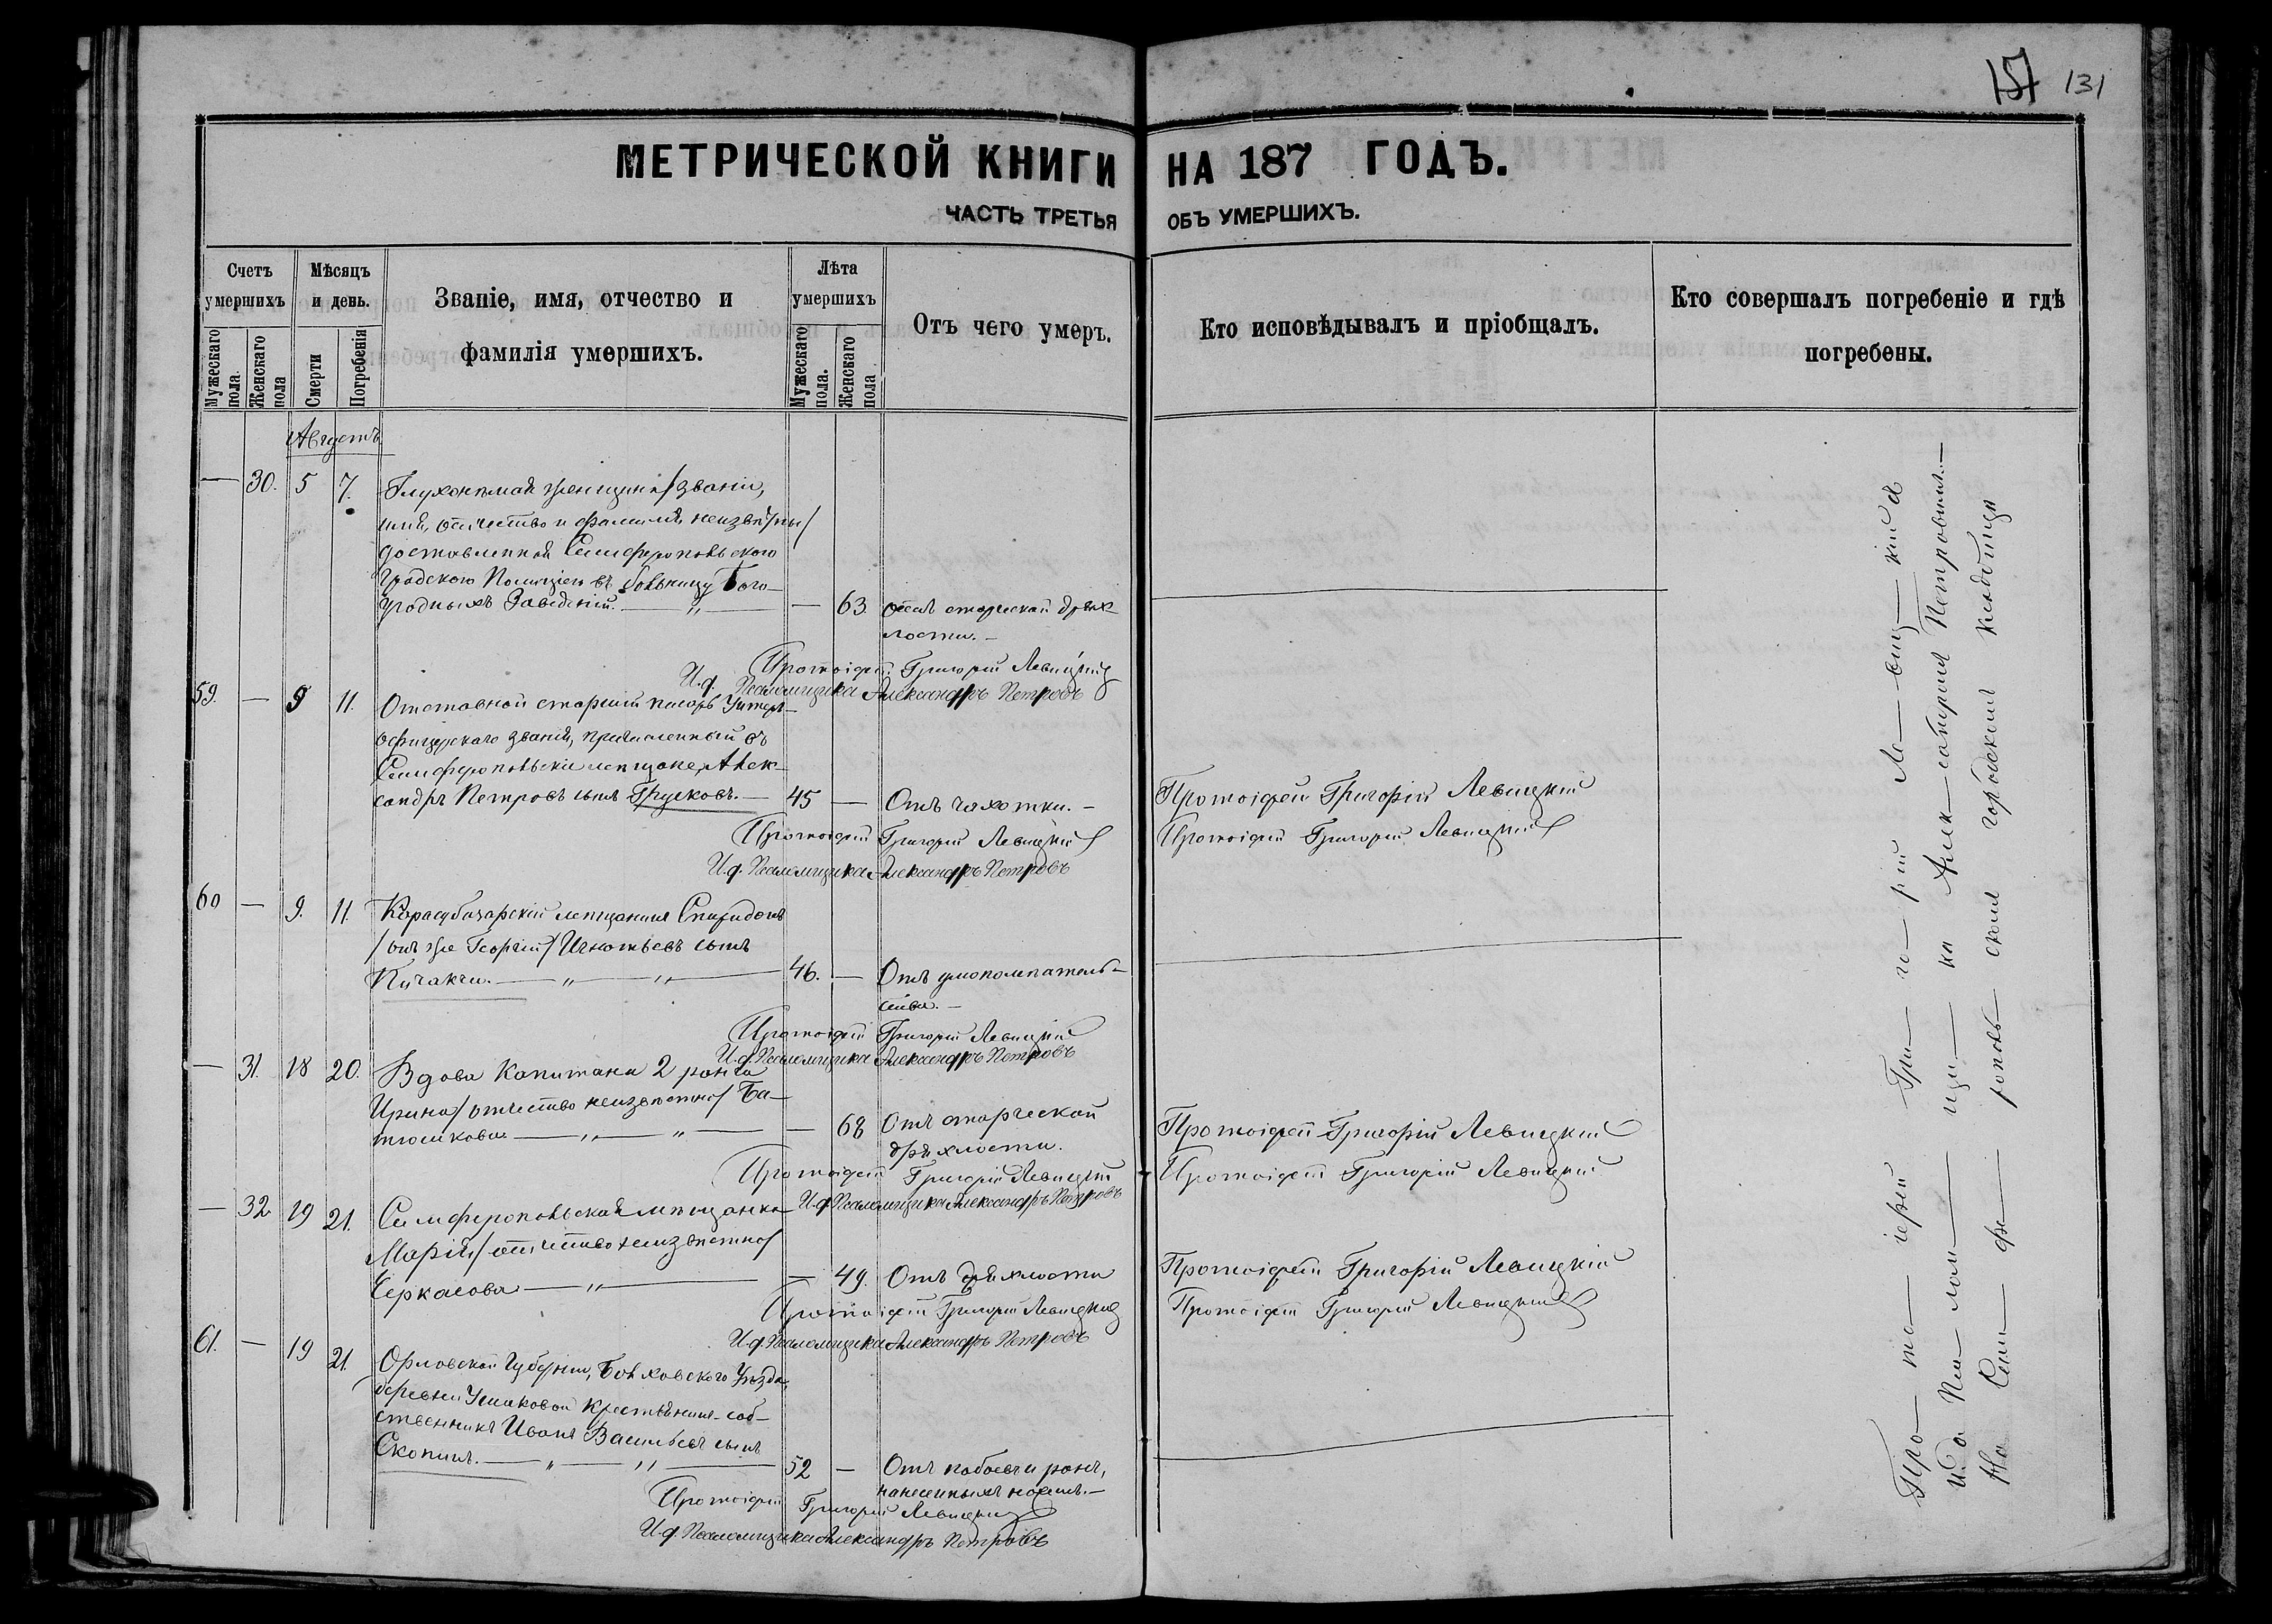 151 131
МЕТРИЧЕСКОЙ КНИГИ НА 187 ГОДЪ.
ЧАСТЬ ТРЕТЬЯ ОБЪ УМЕРШИХЪ.
Счетъ умершихъ
Мужескаго пола.
Женскаго пола
Мѣсяцъ и день.
Смерти
Погребенія
Званіе, имя, отчество и
фамилія умершихъ.
Лѣта умершихъ
Мужескаго пола.
Женскаго пола
Отъ чего умеръ.
Кто исповѣдывалъ и пріобщалъ.
Кто совершалъ погребеніе и гдѣ
погребены.
Августъ
— 30. 5 7. Глухонѣмая женщина /званіе,
имя, отчество и фамилія неизвѣстны/
доставленная Симферопольскою
Градскою Полиціею въ больницу Бого-
угодныхъ Заведеній. — „ — — 63. Отъ старческой дрях-
лости. —
Протоіерей Григорій Левицкій
И. д. Псаломщика Александръ Петровъ
59. — 9 11. Отставной старшій писарь Унтеръ-
офицерскаго званія, причисленный въ
Симферопольскіе мещане, Алек-
сандръ Петровъ сынъ Грусковъ. — 45 — Отъ чахотки. — Протоіерей Григорій Левицкій
Протоіерей Григорій Левицкій Протоіерей Григорій Левицкій
И. д. Псаломщика Александръ Петровъ
60 — 9. 11. Карасубазарскій мещанинъ Спиридонъ
/онъ же Георгій/ Игнатьевъ сынъ
Кичакчи. — „ — „ — 46. — Отъ умопомѣшатель-
ства. —
Протоіерей Григорій Левицкій
И. д. Псаломщика Александръ Петровъ
— 31. 18 20. Вдова Капитана 2 ранга
Ирина /отчество неизвѣстно/ Ба-
тюшкова — „ — „ — — 68 Отъ старческой Протоіерей Григорій Левицкій
дряхлости.
Протоіерей Григорій Левицкій Протоіерей Григорій Левицкій
И. д. Псаломщика Александръ Петровъ
— 32 19 21. Симферопольская мѣщанка
Марія /отчество неизвѣстно/
Черкасова — „ — — 49. Отъ дряхлости Протоіерей Григорій Левицкій
Протоіерей Григорій Левицкій Протоіерей Григорій Левицкій
И. д. Псаломщика Александръ Петровъ
61. — 19 21. Орловской Губерніи, Болховского Уѣзда,
деревни Ушаковой крестьянинъ-соб-
ственникъ Иванъ Васильевъ сынъ
Скопинъ. — „ — „ — 52 — Отъ побоевъ и ранъ,
нанесенныхъ ножемъ. —
Протоіерей Григорій Левицкій
И. д. Псаломщика Александръ Петровъ
Про— то— іерей Гри— го— рій Ле— виц— кій и
и. д. Пса— лом— щи— ка Алек— сандръ Петровъ. —
На Сим— фе— рополь— скомъ городскомъ кладбищѣ